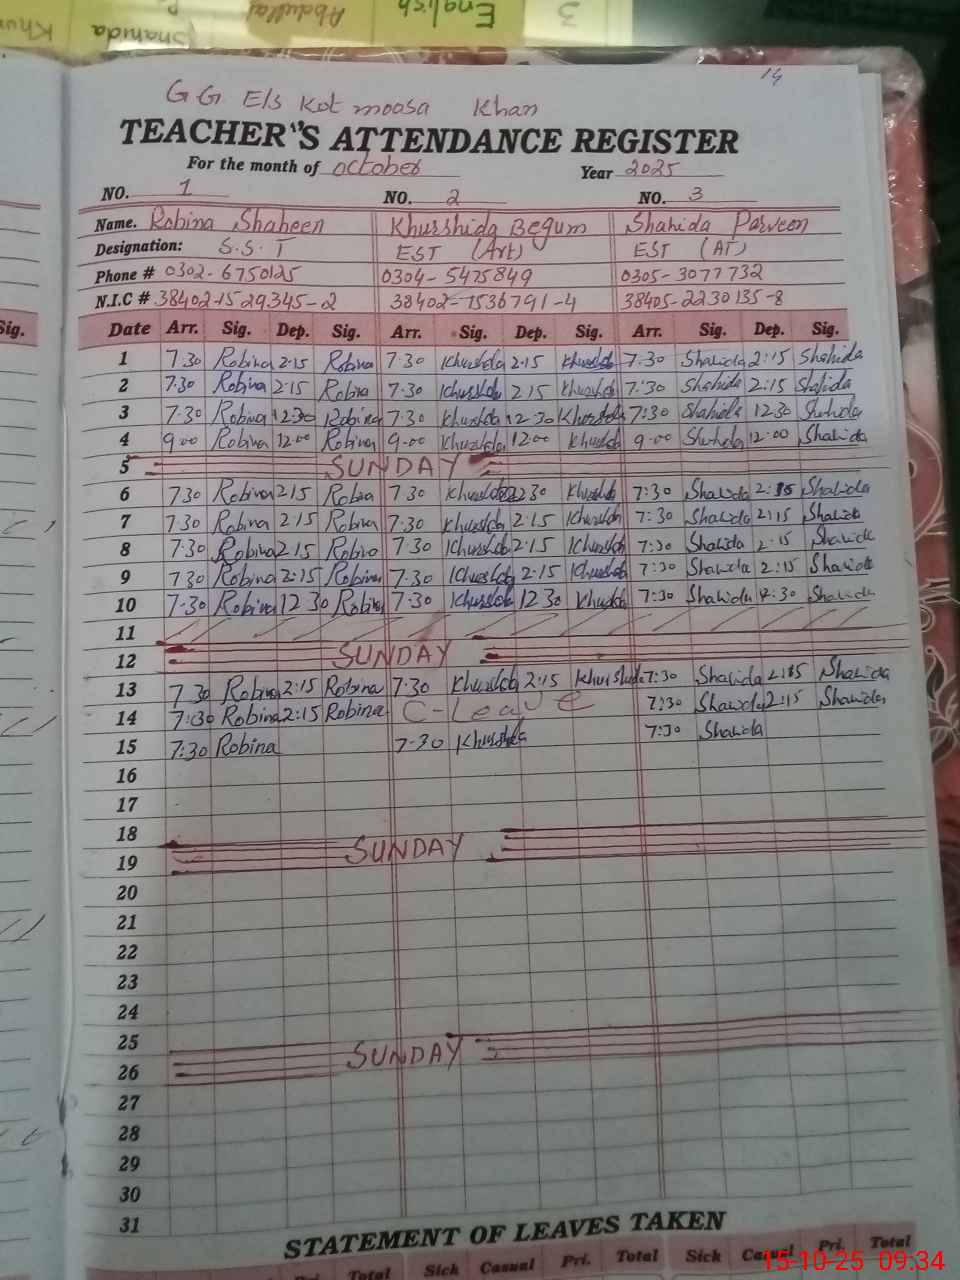 3 English Abdullah Shahida Khur
14
G.G. E/s Kot moosa Khan
TEACHER'S ATTENDANCE REGISTER
For the month of october Year 2025
NO. 1 NO. 2 NO. 3
Name. Robina Shaheen Khurshida Begum Shahida Parveen
Designation: S.S.T EST (Art) EST (AT)
Phone # 0302-6750125 0304-5475849 0305-3077732
N.I.C # 38402-1529345-2 38402-1536791-4 38405-2230135-8
Sig. Date Arr. Sig. Dep. Sig. Arr. Sig. Dep. Sig. Arr. Sig. Dep. Sig.
1 7.30 Robina 2.15 Robina 7.30 Khurshda 2.15 Khurshda 7.30 Shahida 2:15 Shahida
2 7.30 Robina 2.15 Robina 7.30 Khurshda 2.15 Khurshda 7:30 Shahida 2:15 Shahida
3 7.30 Robina 12.30 Robina 7.30 Khurshda 12.30 Khurshda 7:30 Shahida 12.30 Shahida
4 9.00 Robina 12.00 Robina 9.00 Khurshda 12.00 Khurshda 9.00 Shahida 12.00 Shahida
5 SUNDAY
6 7.30 Robina 2.15 Robina 7.30 Khurshda 2.30 Khurshda 7:30 Shahida 2:15 Shahida
7 7.30 Robina 2.15 Robina 7.30 Khurshda 2.15 Khurshda 7:30 Shahida 2:15 Shahida
8 7.30 Robina 2.15 Robina 7.30 Khurshda 2.15 Khurshda 7:30 Shahida 2.15 Shahida
9 7.30 Robina 2:15 Robina 7.30 Khurshda 2.15 Khurshda 7:30 Shahida 2:15 Shahida
10 7.30 Robina 12.30 Robina 7.30 Khurshda 12.30 Khurshda 7:30 Shahida 12.30 Shahida
11
12 SUNDAY
13 7.30 Robina 2:15 Robina 7:30 Khurshda 2.15 Khurshida 7:30 Shahida 2:15 Shahida
14 7:30 Robina 2:15 Robina C-Leave 7:30 Shahida 2:15 Shahida
15 7:30 Robina 7.30 Khurshda 7:30 Shahida
16
17
18
19 SUNDAY
20
21
22
23
24
25
26 SUNDAY
27
28
29
30
31
STATEMENT OF LEAVES TAKEN
Pri. Total Sick Casual Pri. Total Sick Casual Pri. Total
15-10-25 09:34